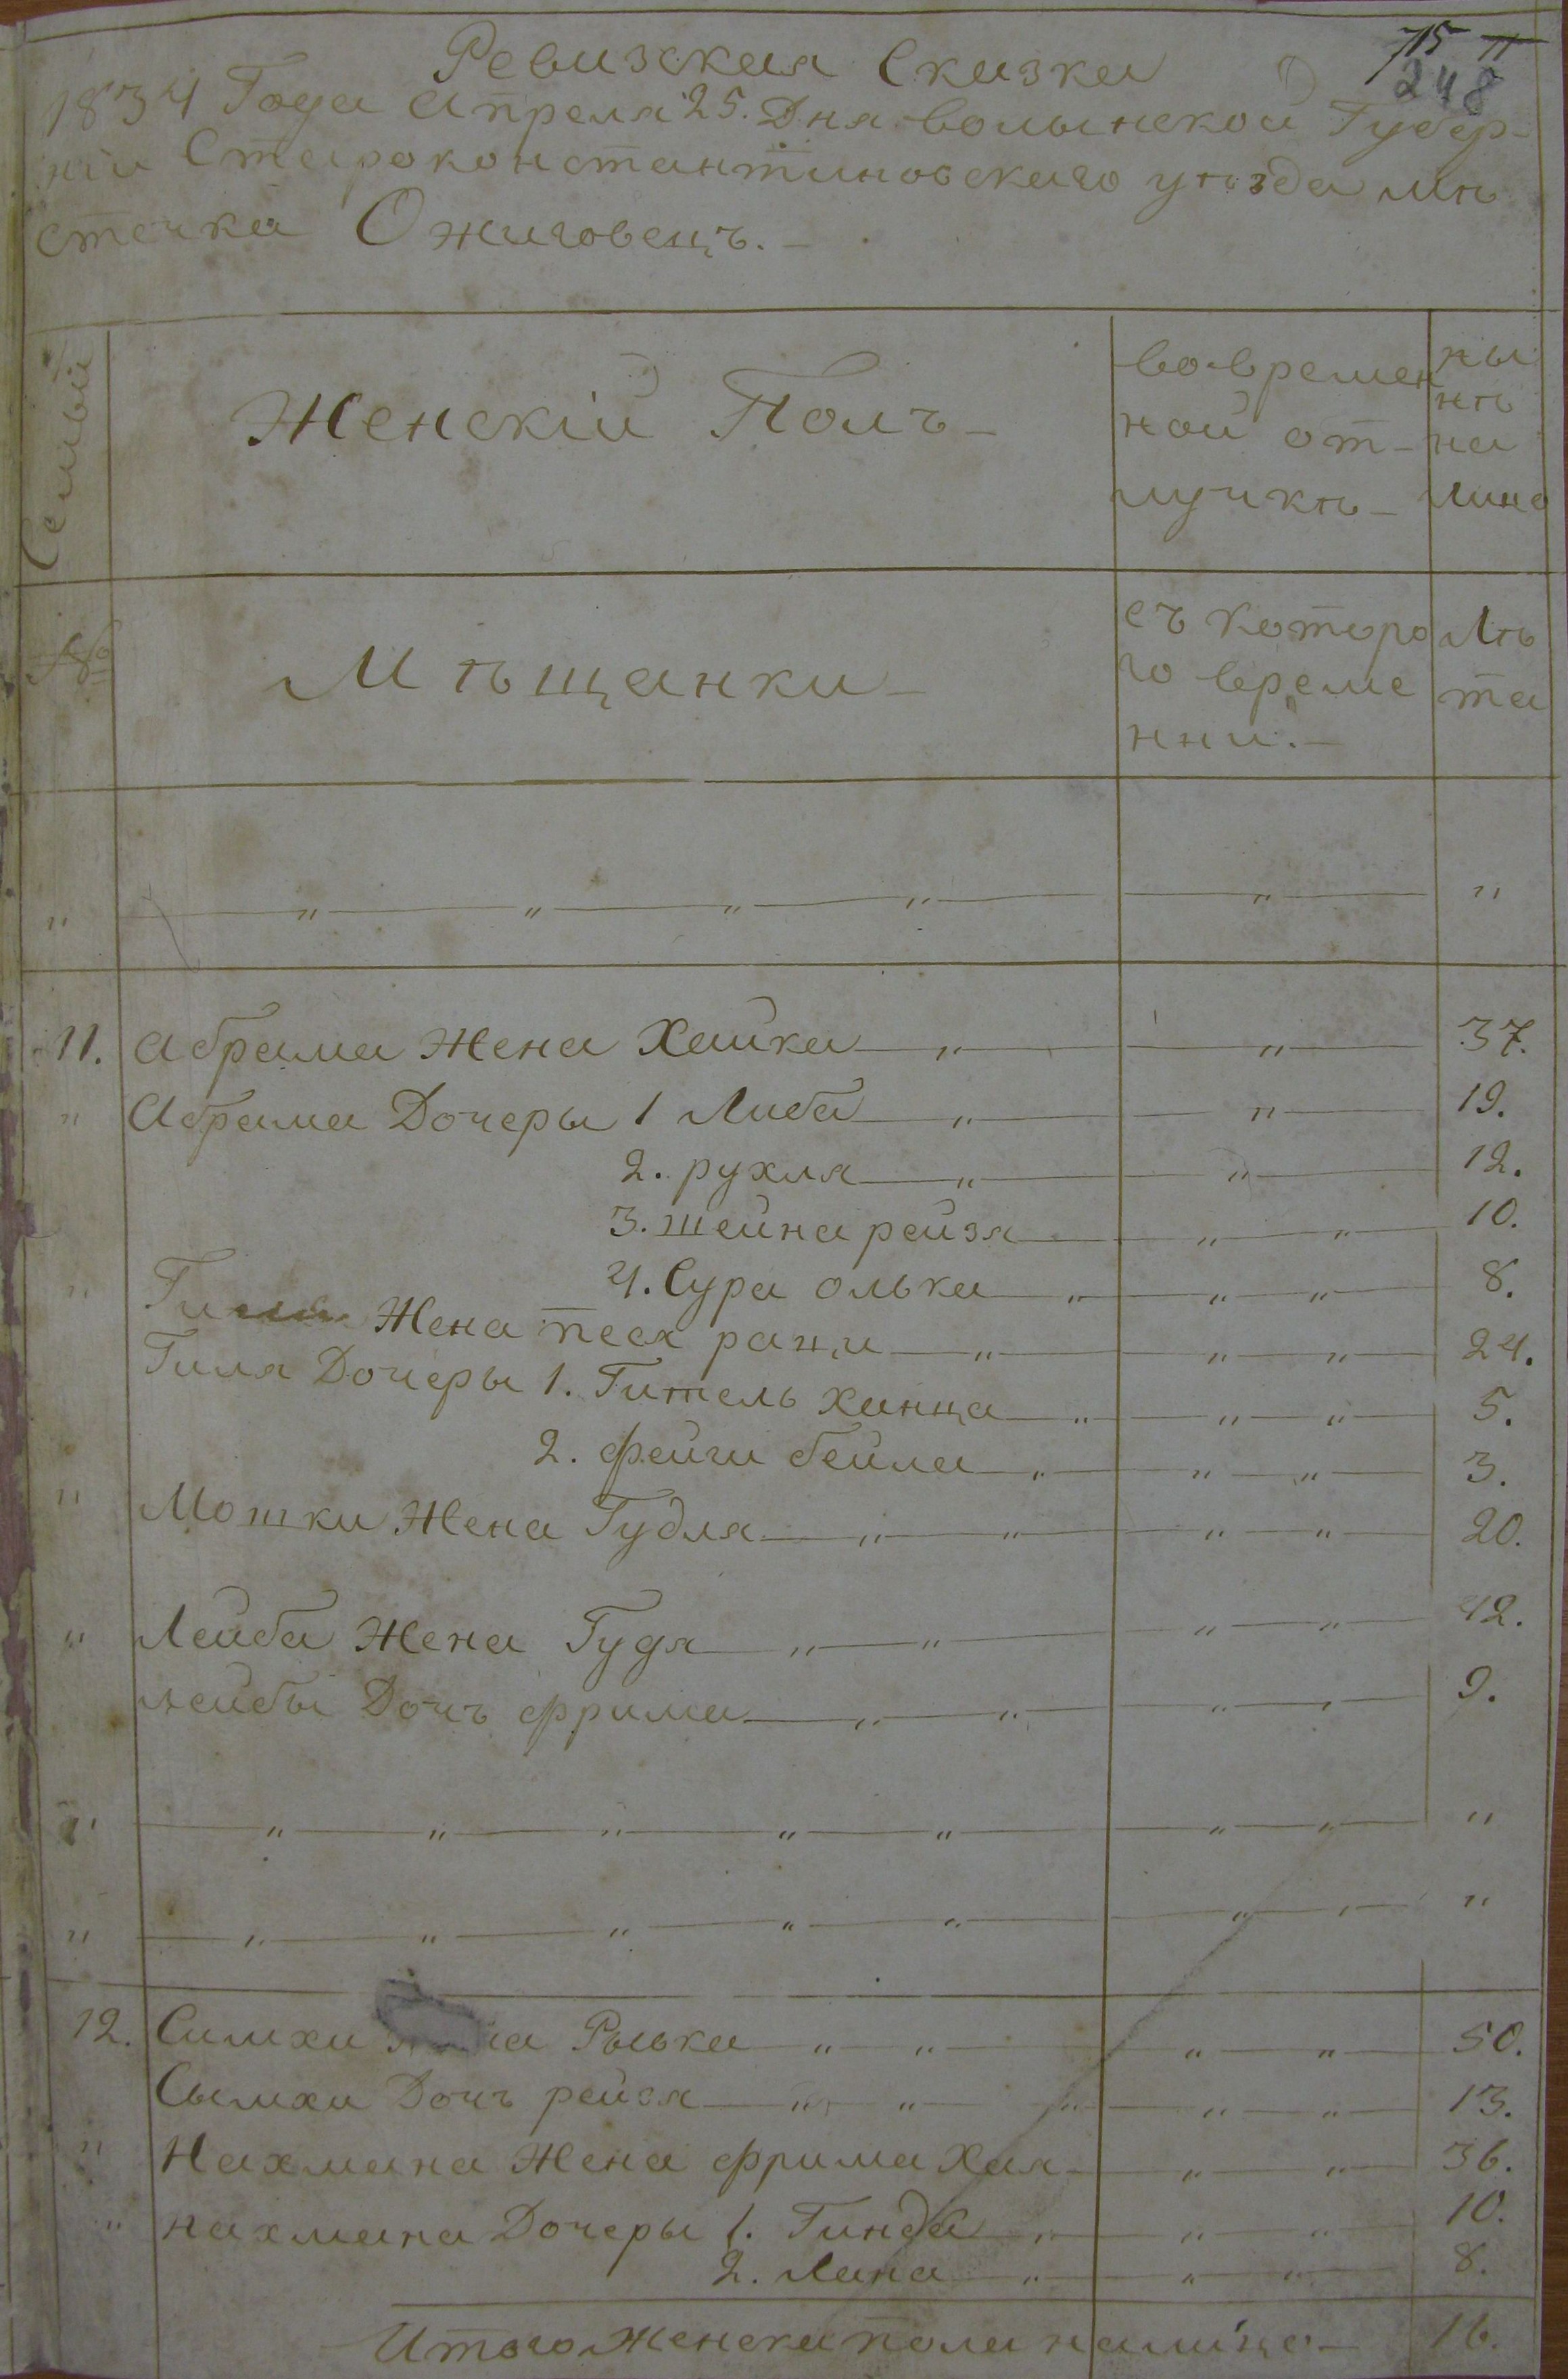 Ревизская Сказка
15 11
248
1834 Года Апреля 25. Дня Волынской Губер-
ніи Староконстантиновскаго уѣзда мѣ
стечка Ожиговецъ.
Семьи
Женскій Полъ
во времен
ной от-
лучкѣ
ны
нѣ
на
лицо
№
Мѣщанки
съ которо
го време
нни.
Лѣ
та
" " " " " " "
11. Абрама Жена Хайка " " 37.
" Абрама Дочеры 1 Либа " " 19.
2. рухля " " 12.
3. шейна рейзя " " 10.
4. Сура олька " " " 8.
" Жена песя ранци " " " 24.
Гиля Дочеры 1. Гитель Ханца " " " 5.
2. фейги бейла " " " 3.
" Мошки Жена Гудля " " " " 20.
" Лейба Жена Гудя " " " " 42.
лейбы Дочъ фрима " " " " 9.
" " " " " " " " "
" " " " " " " " "
12. Симхи Рывка " " " " 50.
Сымхи Дочъ рейзя " " " " " 13.
" Нахмана Жена фрима Хая " " 36.
" нахмана Дочеры 1. Гинда " " " 10.
2. Лана " " " 8.
Итого женска пола налице 16.